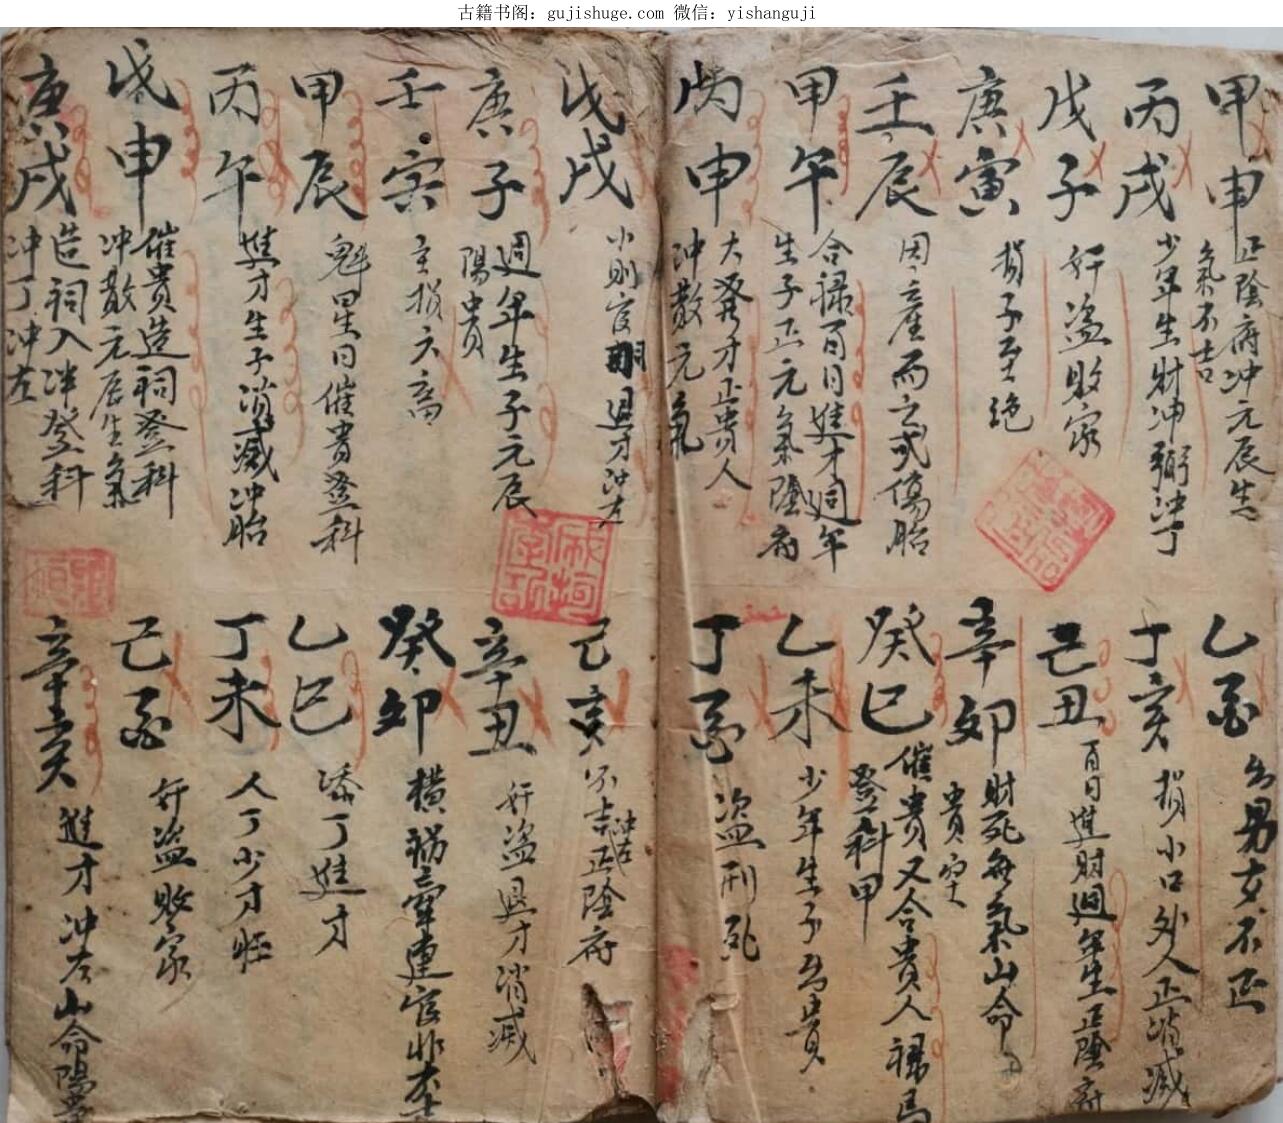 古籍书阁：gujishuge.com 微信：yishanguji
甲申 正陰府冲元辰生
氣不吉
丙戌 少年生財冲 冲丁
戊子 奸盗敗家
庚寅 損子至絶
壬辰 因産而亡或傷胎
甲午 合禄百日進才週年
生子正元氣陰府
丙申 大發才正貴人
冲散元氣
乙酉 出男女不正
丁亥 損小口外人正消滅
己丑 百日進財週年生正陰府
辛卯 財死無氣山命
貴
癸巳 催貴又合貴人禄馬
登科甲
乙未 少年生子為貴
丁酉 盗刑死
戊戌 小則官 退才冲左
庚子 週年生子元辰
陽貴
壬寅 主損六畜
甲辰 魁星日催貴登科
丙午 進才生子消滅冲胎
戊申 催貴造祠登科
冲散元辰生氣
庚戌 造祠入泮登科
冲丁冲左
己亥 不吉正陰府
冲左
辛丑 奸盗退才消滅
癸卯 橫禍牽連官非
乙巳 添丁進才
丁未 人丁少才旺
己酉 奸盗敗家
辛亥 進才冲左山命陽貴